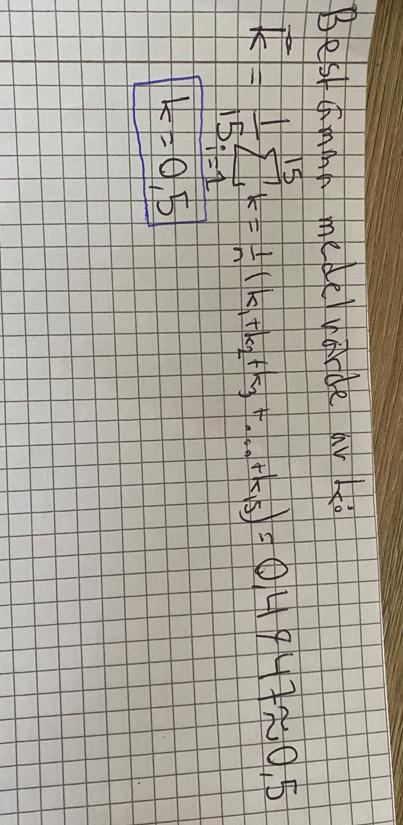 Bestämmn medelvärde av k:
k̄ = 1/15 15∑i=1 k = 1/n (k₁+k₂+k₃+...+k₁₅) = 0,4947≈0,5
k=0,5